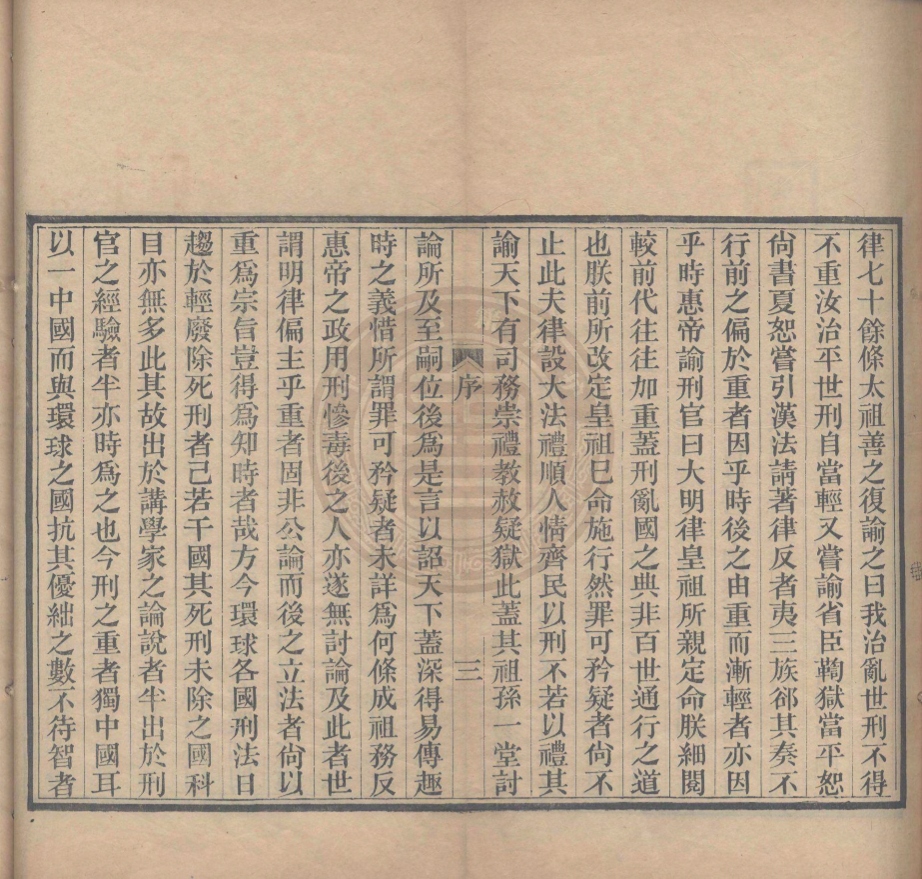 律七十餘條太祖善之復諭之曰我治亂世刑不得
不重汝治平世刑自當輕又嘗諭省臣鞫獄當平恕
尙書夏恕嘗引漢法請著律反者夷三族郤其奏不
行前之偏於重者因乎時後之由重而漸輕者亦因
乎時惠帝諭刑官曰大明律皇祖所親定命朕細閱
較前代往往加重蓋刑亂國之典非百世通行之道
也朕前所改定皇祖已命施行然罪可矜疑者尙不
止此夫律設大法禮順人情齊民以刑不若以禮其
諭天下有司務崇禮教赦疑獄此蓋其祖孫一堂討
序 三
論所及至嗣位後爲是言以詔天下蓋深得易傳趣
時之義惜所謂罪可矜疑者未詳爲何條成祖務反
惠帝之政用刑慘毒後之人亦遂無討論及此者世
謂明律偏主乎重者固非公論而後之立法者尙以
重爲宗旨豈得爲知時者哉方今環球各國刑法日
趨於輕廢除死刑者已若干國其死刑未除之國科
目亦無多此其故出於講學家之論說者半出於刑
官之經驗者半亦時爲之也今刑之重者獨中國耳
以一中國而與環球之國抗其優絀之數不待智者